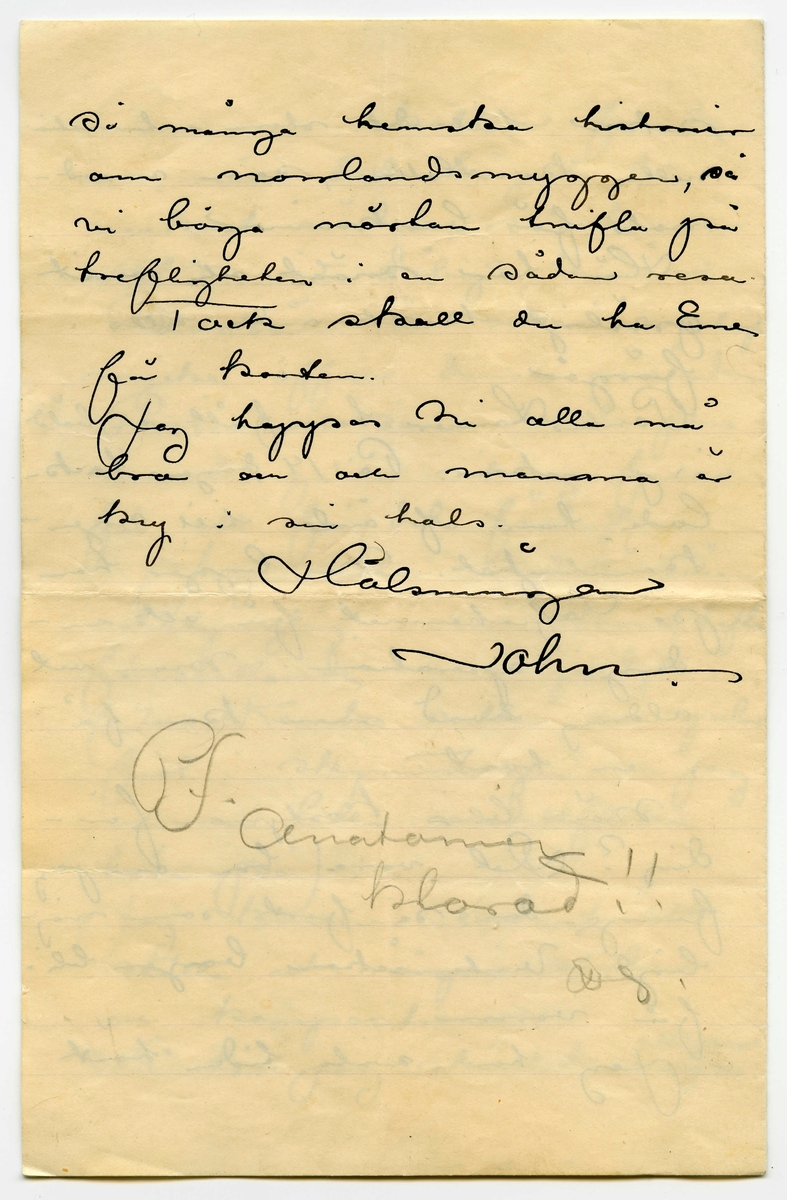 så många hemska historier
om norrlandsmyggen, så
vi börja nästan tvifla på
trefligheten i en sådan resa.
Tack skall du ha
för korten.
Jag hoppas Ni alla må
bra och mamma är
kry i sin hals.
Hälsningar
John.
P.S.
Anatomien
klarad!!